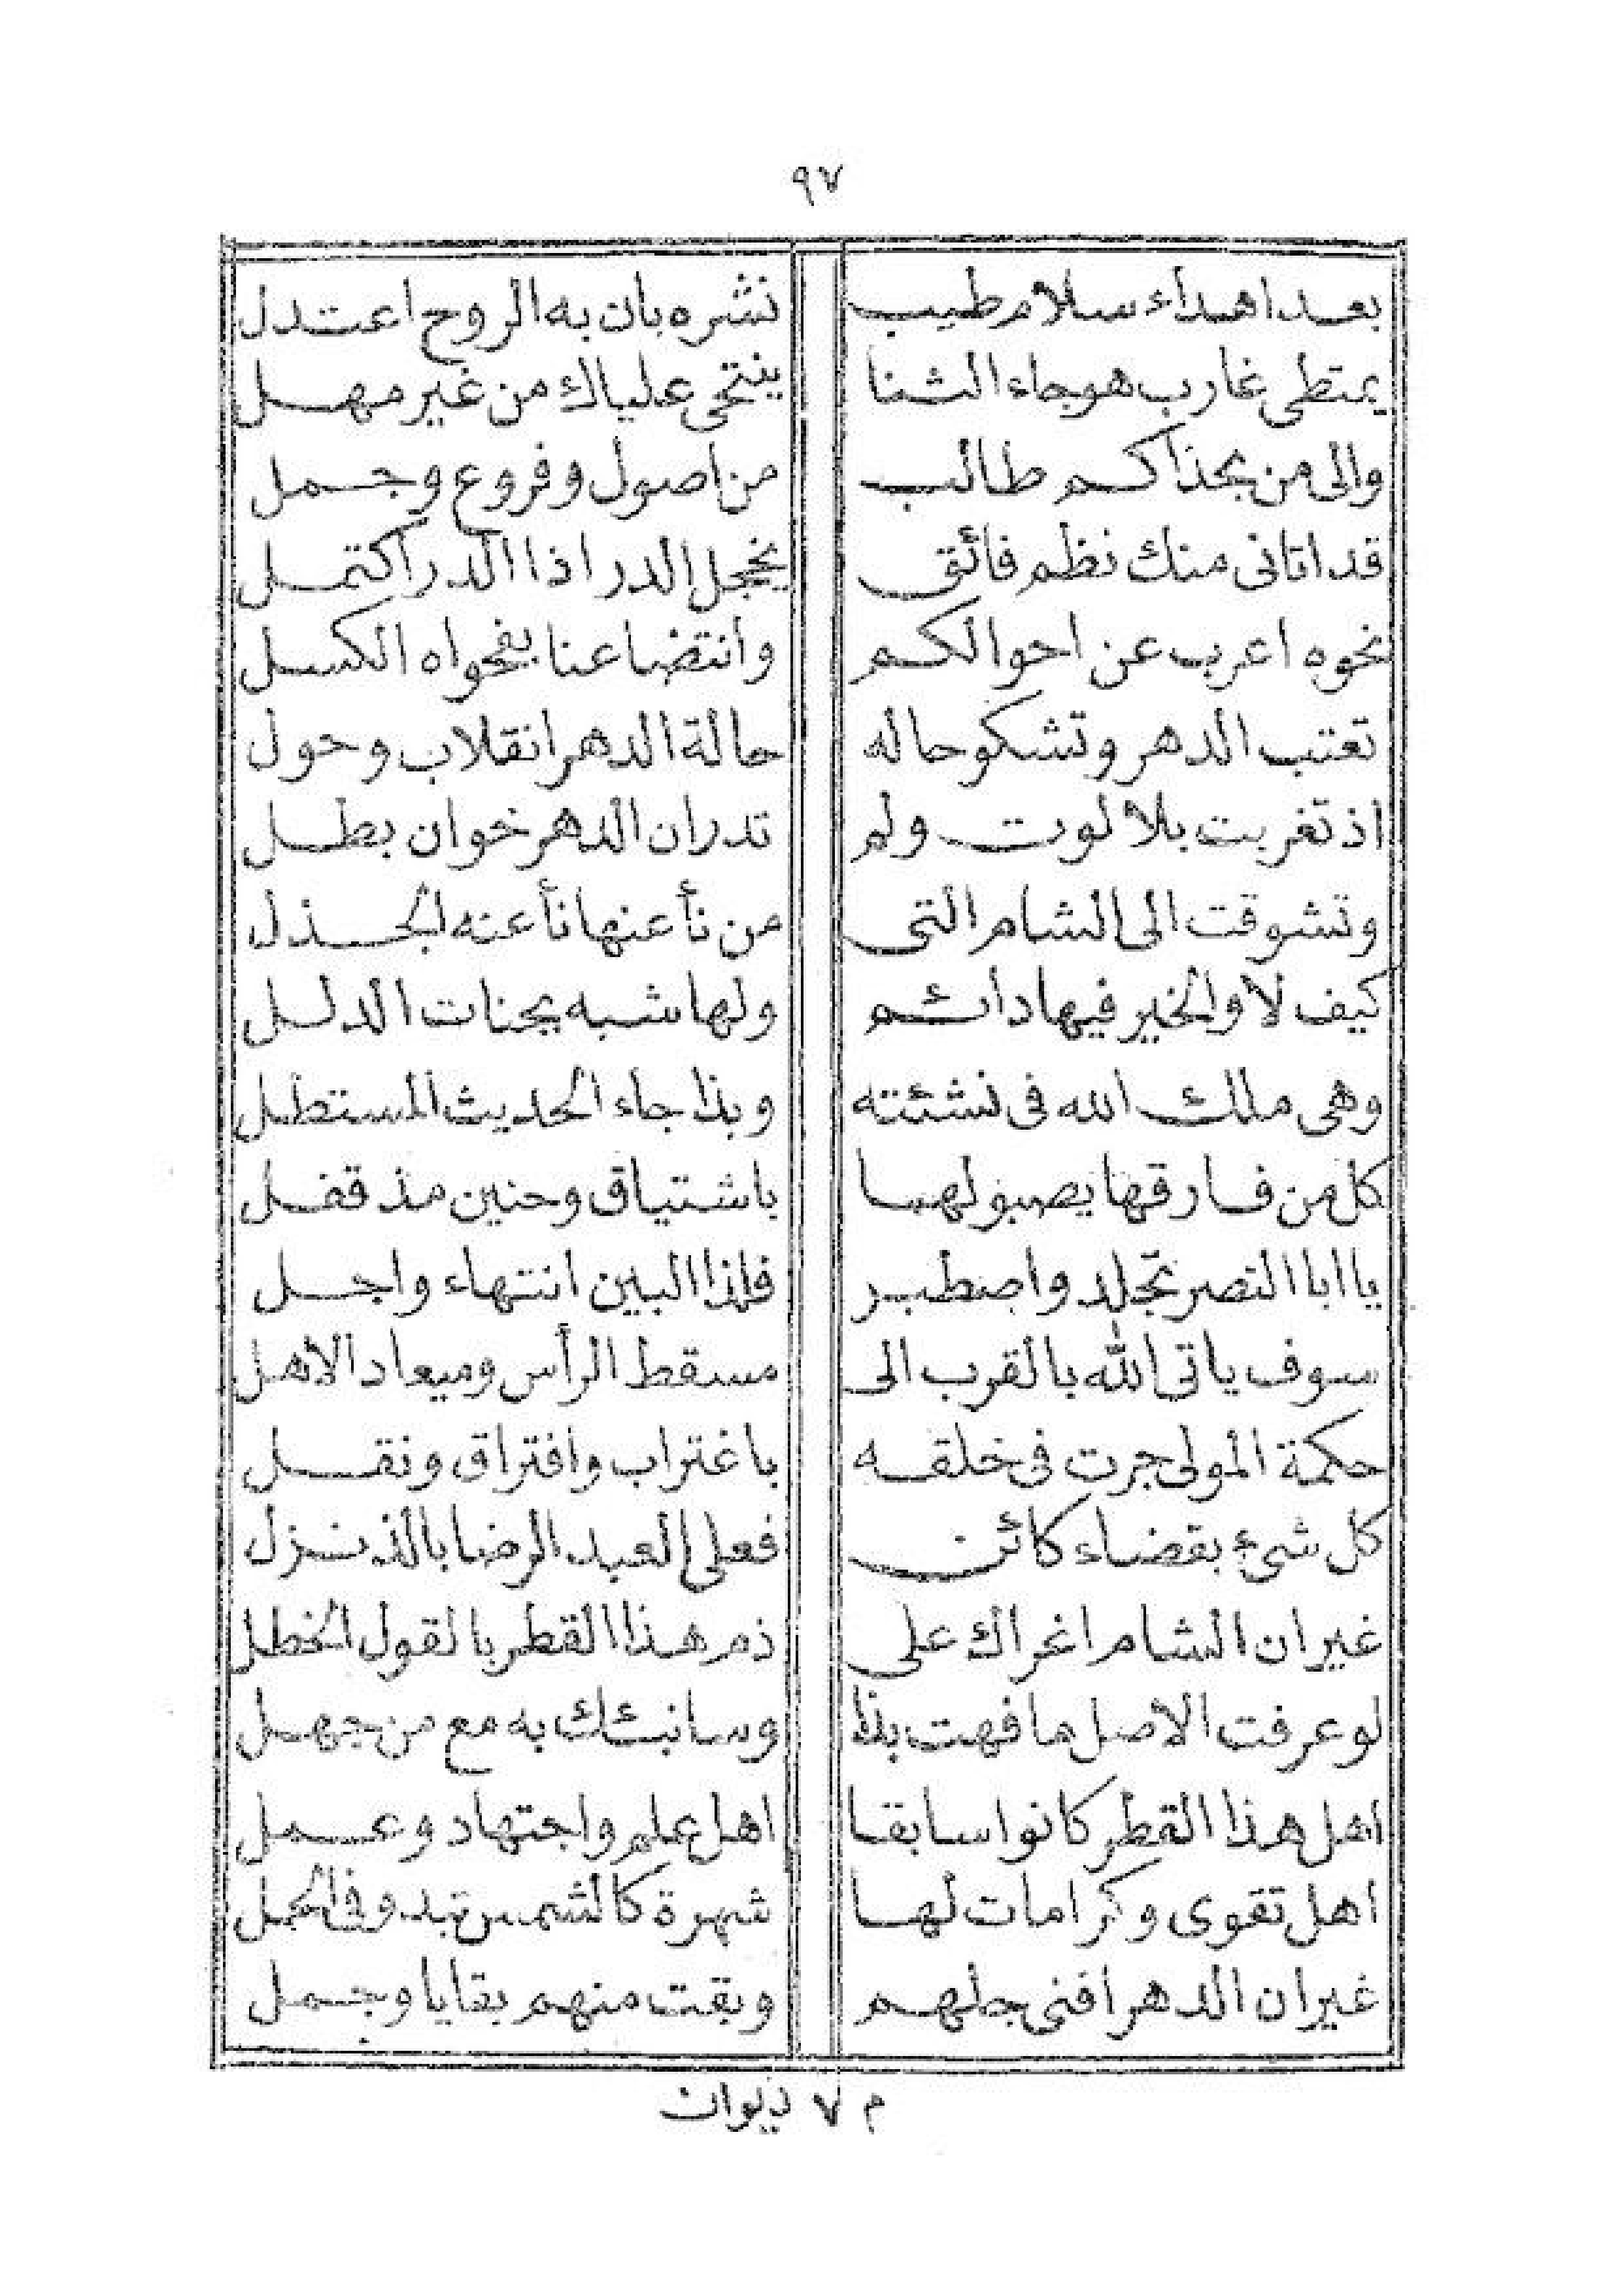 ٩٧
بعد اهداء سلام طيب نشره بان به الروح اعتدل
يمتطى غارب هوجاء الثنا ينتحى علياك من غير مهل
والى من بحذاكم طالب من اصول وفروع وجمل
قد اتانى منك نظم فائق يخجل الدر اذا الدر اكتمل
نحوه اعرب عن احوالكم وانتضا عنا بفحواه الكسل
تعتب الدهر وتشكو حاله حالة الدهر انقلاب وحول
اذ تغربت بلا لوت ولم تدر ان الدهر خوان بطل
وتشوقت الى الشام التى من نأ عنها نأ عنه الجذل
كيف لا والخير فيها دائم ولها شبه بجنات الدلل
وهى ملك الله فى نشئته وبذا جاء الحديث المستطل
كل من فارقها يصبو لها باشتياق وحنين مذ قفل
يا ابا النصر تجلد واصطبر فلذا البين انتهاء واجل
سوف ياتى الله بالقرب الى مسقط الرأس وميعاد الاهل
حكمة المولى جرت فى خلقه باغتراب وافتراق ونقل
كل شىء بقضاء كائن فعلى العبد الرضا بالذ نزل
غير ان الشام اغراك على ذم هذا القطر بالقول الخطل
لو عرفت الاصل ما فهت بذا وسانبئك به مع من جهل
اهل هذا القطر كانوا سابقا اهل علم واجتهاد وعمل
اهل تقوى وكرامات لها شهرة كالشمس تبدو فى الحمل
غير ان الدهر افنى جلهم وبقت منهم بقايا وجمل
م ٧ ديوان